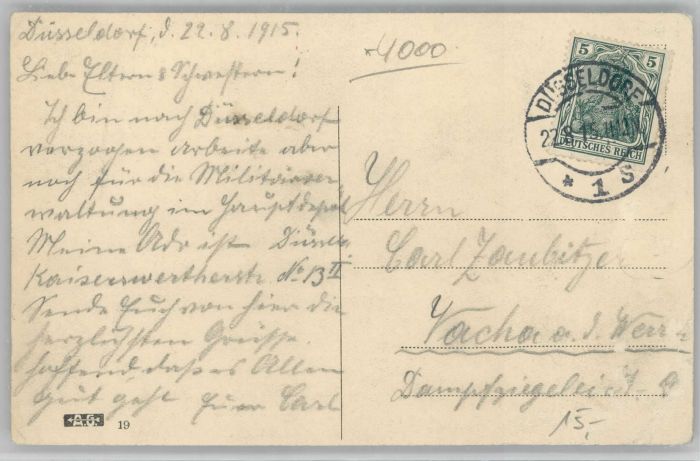 Düsseldorf, d. 22.8.1915.
Liebe Eltern & Schwestern!
Ich bin nach Düsseldorf
verzogen arbeite aber
noch für die Militärver-
waltung im Hauptdepot
Meine Adr ist Düsseld.
Kaiserswertherstr No 13 II
Sende Euch von hier die
herzlichsten Grüsse
hoffend daß es Allen
gut geht Euer Carl
A.G. 19
*4000
5 5
DEUTSCHES REICH
DÜSSELDORF
22.8.15
* 1 S
Herrn
Carl Zaubitzer
Vacha a. d. Werr
Dampfziegelei
15,-